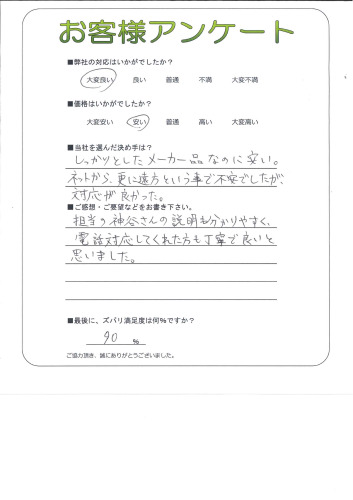 お客様アンケート
■弊社の対応はいかがでしたか？
大変良い 良い 普通 不満 大変不満
■価格はいかがでしたか？
大変安い 安い 普通 高い 大変高い
■当社を選んだ決め手は？
しっかりとしたメーカー品なのに安い。
ネットから、更に遠方という事で不安でしたが、
対応が良かった。
■ご感想・ご要望などをお書き下さい。
担当の神谷さんの説明も分かりやすく、
電話対応してくれた方も丁寧で良いと
思いました。
■最後に、ズバリ満足度は何%ですか？
90 %
ご協力頂き、誠にありがとうございました。